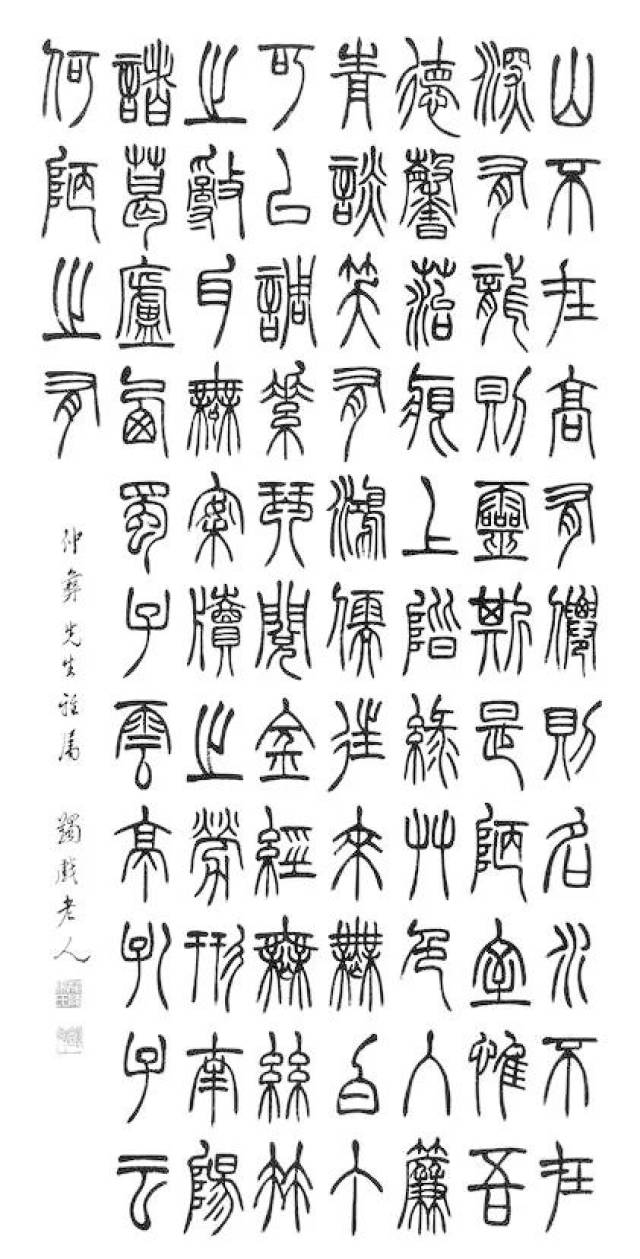 山不在高有僊則名水不在
深有龍則靈斯是陋室惟吾
德馨菭痕上階綠艸色入簾
青談笑有鴻儒往來無白丁
可以調素琴閱金經無絲竹
之亂耳無案牘之勞形南陽
諸葛廬西蜀子雲亭孔子云
何陋之有
仲彝先生雅屬 蠲戲老人